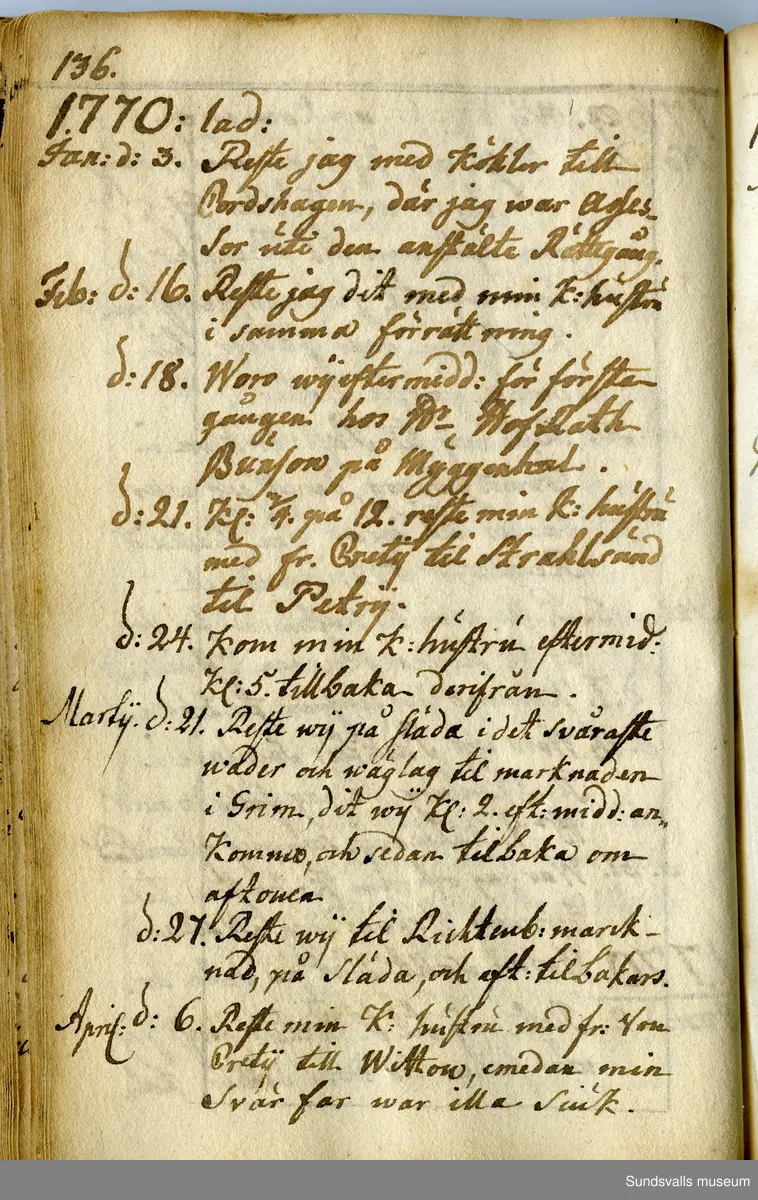 136.
1770: lad:
Jan: d: 3. Reste jag med Köhler till
Cordshagen, där jag war Asses-
sor uti den anstälte Rättegång.
Feb: d: 16. Reste jag dit med min K: hustru
i samma förrättning.
d: 18. Woro wij eftermidd: för första
gången hos Hr Hof Rath
Bunsow på Müggenhal.
d: 21. Kl: 3/4. på 12. reste min K: hustru
med fr. Pretij til Strahlsund
til Petrij.
d: 24. Kom min K: hustru eftermid:
Kl: 5. tillbaka derifrån.
Martij. d: 21. Reste wij på släda i det svåraste
wäder och wäglag til marknaden
i Grim, dit wij Kl: 2. eft: midd: an„
kommo, och sedan tilbaka om
aftonen
d: 27. Reste wij til Richtenb: marck-
nad, på släda, och eft: tilbakars.
April: d: 6. Reste min K: hustru med fr: von
Pretij till Wittow, emedan min
Svär far war illa siuk.
Sundsvalls museum